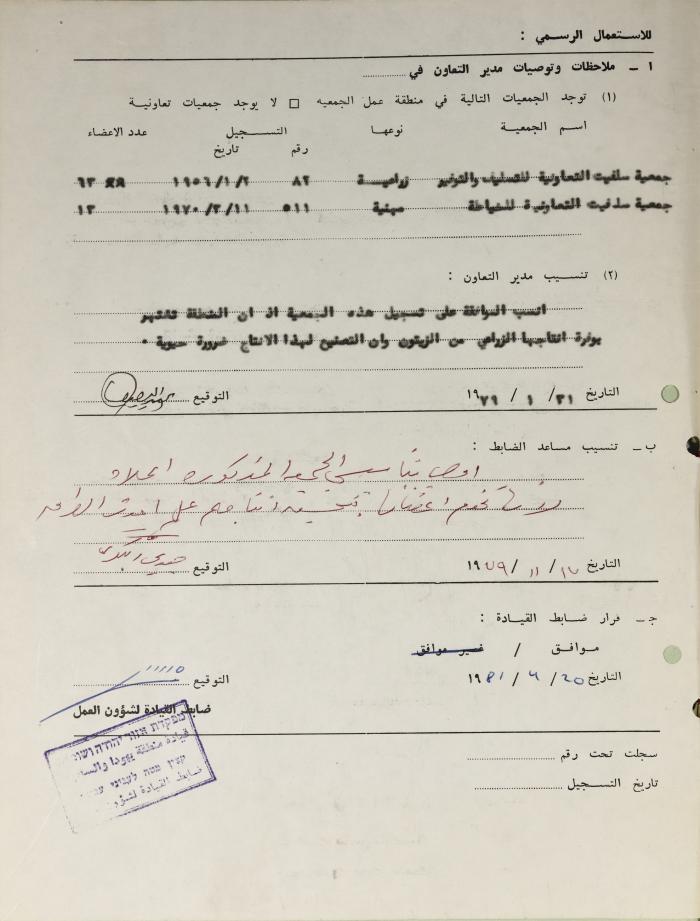 للاستعمال الرسمي :
١ ـ ملاحظات وتوصيات مدير التعاون في ..........
(١) توجد الجمعيات التالية في منطقة عمل الجمعيه □ لا يوجد جمعيات تعاونية
اسم الجمعية نوعها التسجيل عدد الاعضاء
رقم تاريخ
جمعية سلفيت التعاونية للتسليف والتوفير زراعية ٨٢ ١٩٥٦/١/٢ ٦٣
جمعية سلفيت التعاونية للخياطة مهنية ٥١١ ١٩٧٠/٣/١١ ١٣
(٢) تنسيب مدير التعاون :
انسب الموافقة على تسجيل هذه الجمعية اذ ان المنطقة تشتهر
بوفرة انتاجها الزراعي من الزيتون وان التصنيع لهذا الانتاج ضرورة حيوية ٠
التاريخ ٣١ / ١ / ١٩٧٩ التوقيع
ب ـ تنسيب مساعد الضابط :
اوصي بتأسيس الجمعيه المذكوره اعلاه
التاريخ / ١١ / ١٩٧٩ التوقيع
جـ ـ قرار ضابط القيادة :
موافق / غير موافق
التاريخ ٢٥ / / ١٩٨١ التوقيع
ضابط القيادة لشؤون العمل
מפקדת אזור יהודה ושומ
قيادة منطقة يهودا والسا
קצין מטה לעניני עב
ضابط القيادة لشؤو
سجلت تحت رقم
تاريخ التسجيل